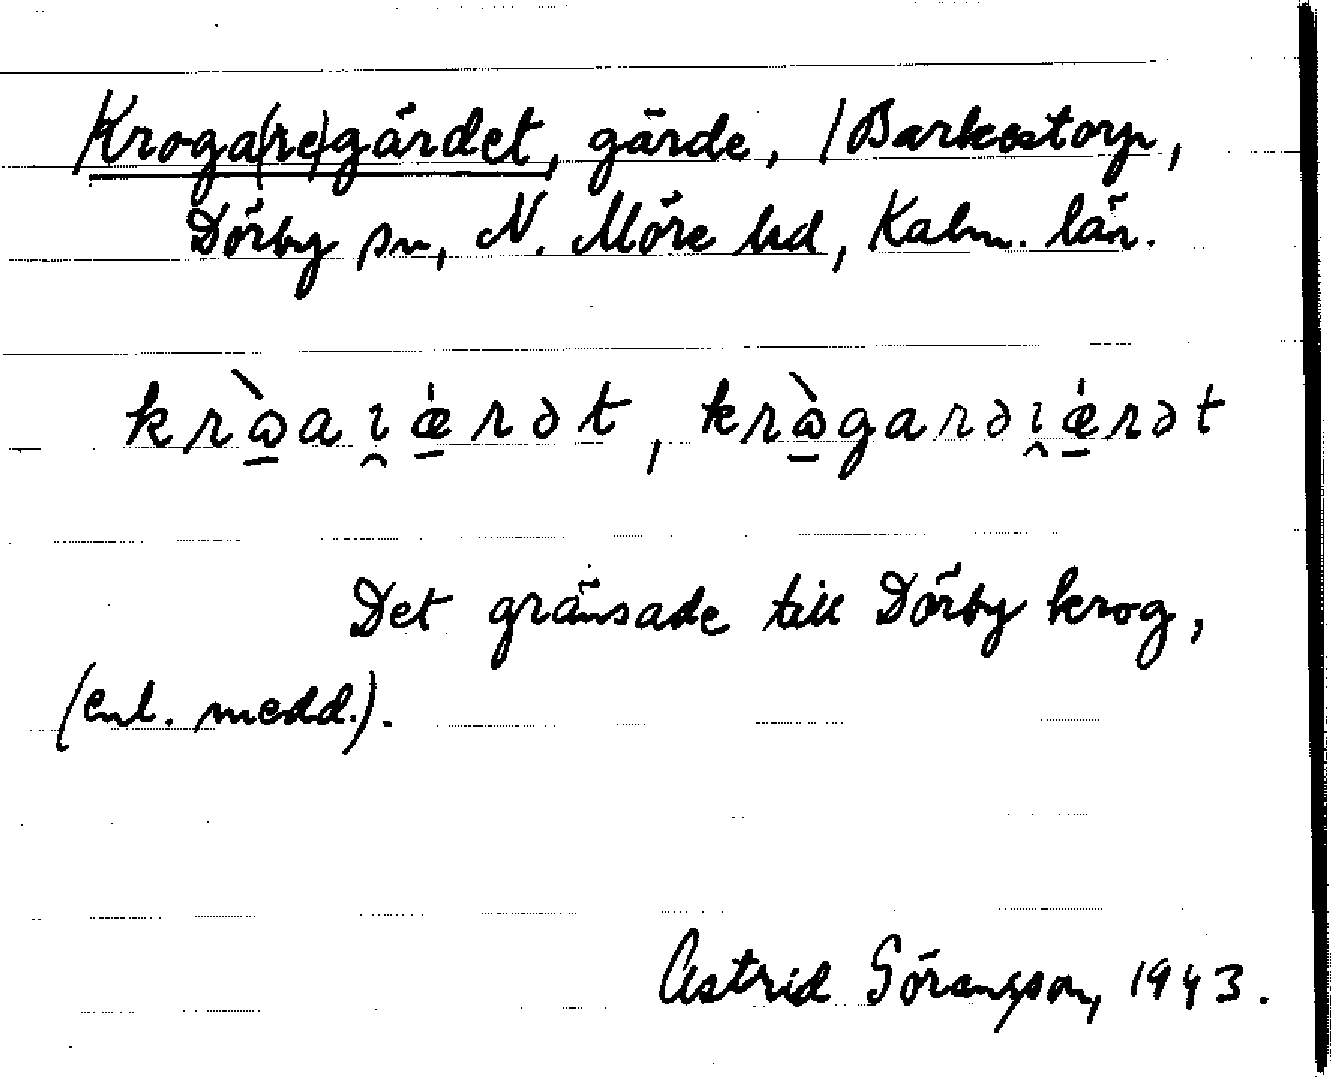 Kroga(re)gärdet, gärde, / Barkestorp,
Dörby sn, N. Möre hd, Kalm. län.
krɷ̠̀aɿ̯ǽ̠rət, krɷ̠̀garəɿ̯ǽ̠rət
Det gränsade till Dörby krog,
(enl. medd.).
Astrid Göransson, 1943.